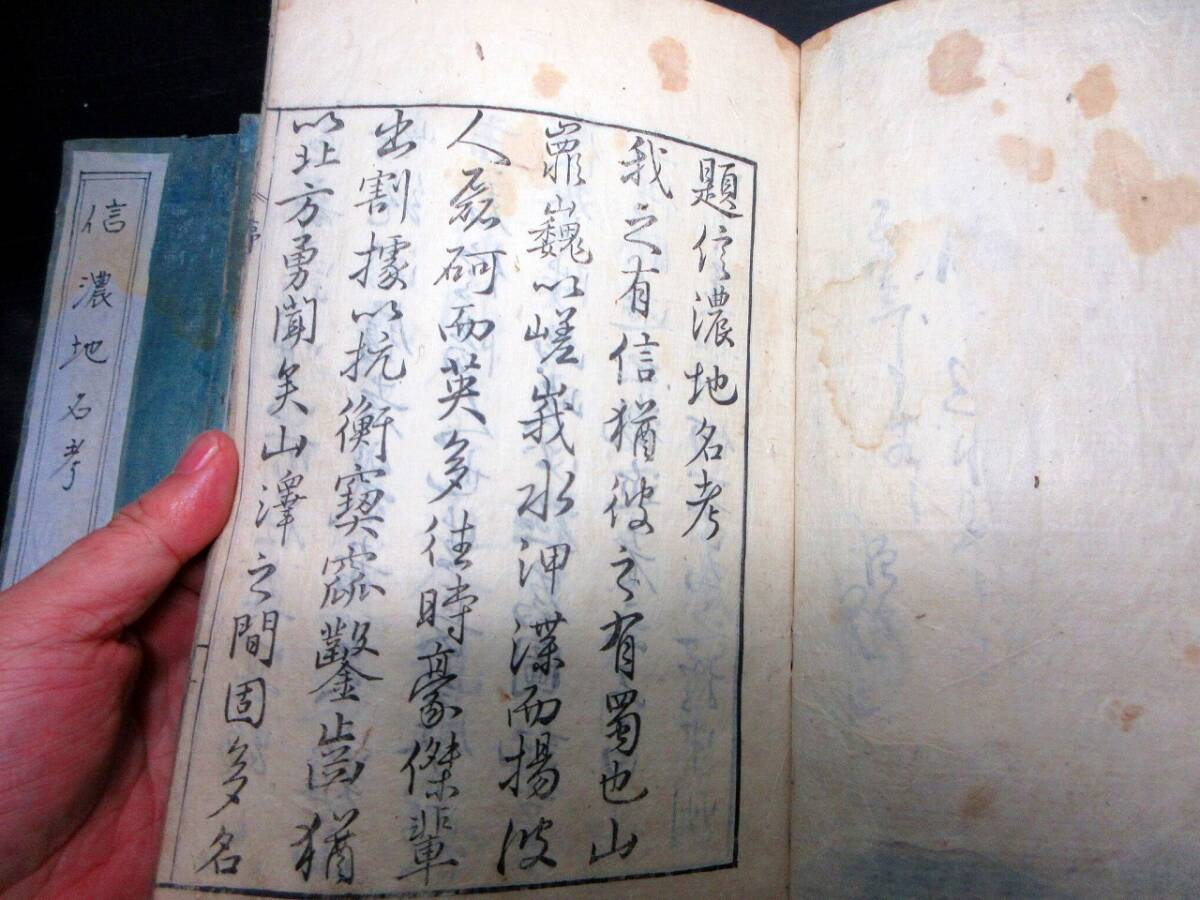 題信濃地名考
我之有信猶彼之有蜀也山
嶵巍以嵯峨水㳌渫而揚波
人磊砢而英多往時豪傑輩
出割據以抗衡窫窳鑿齒猶
以北方勇聞矣山澤之間固多名
信濃地名考